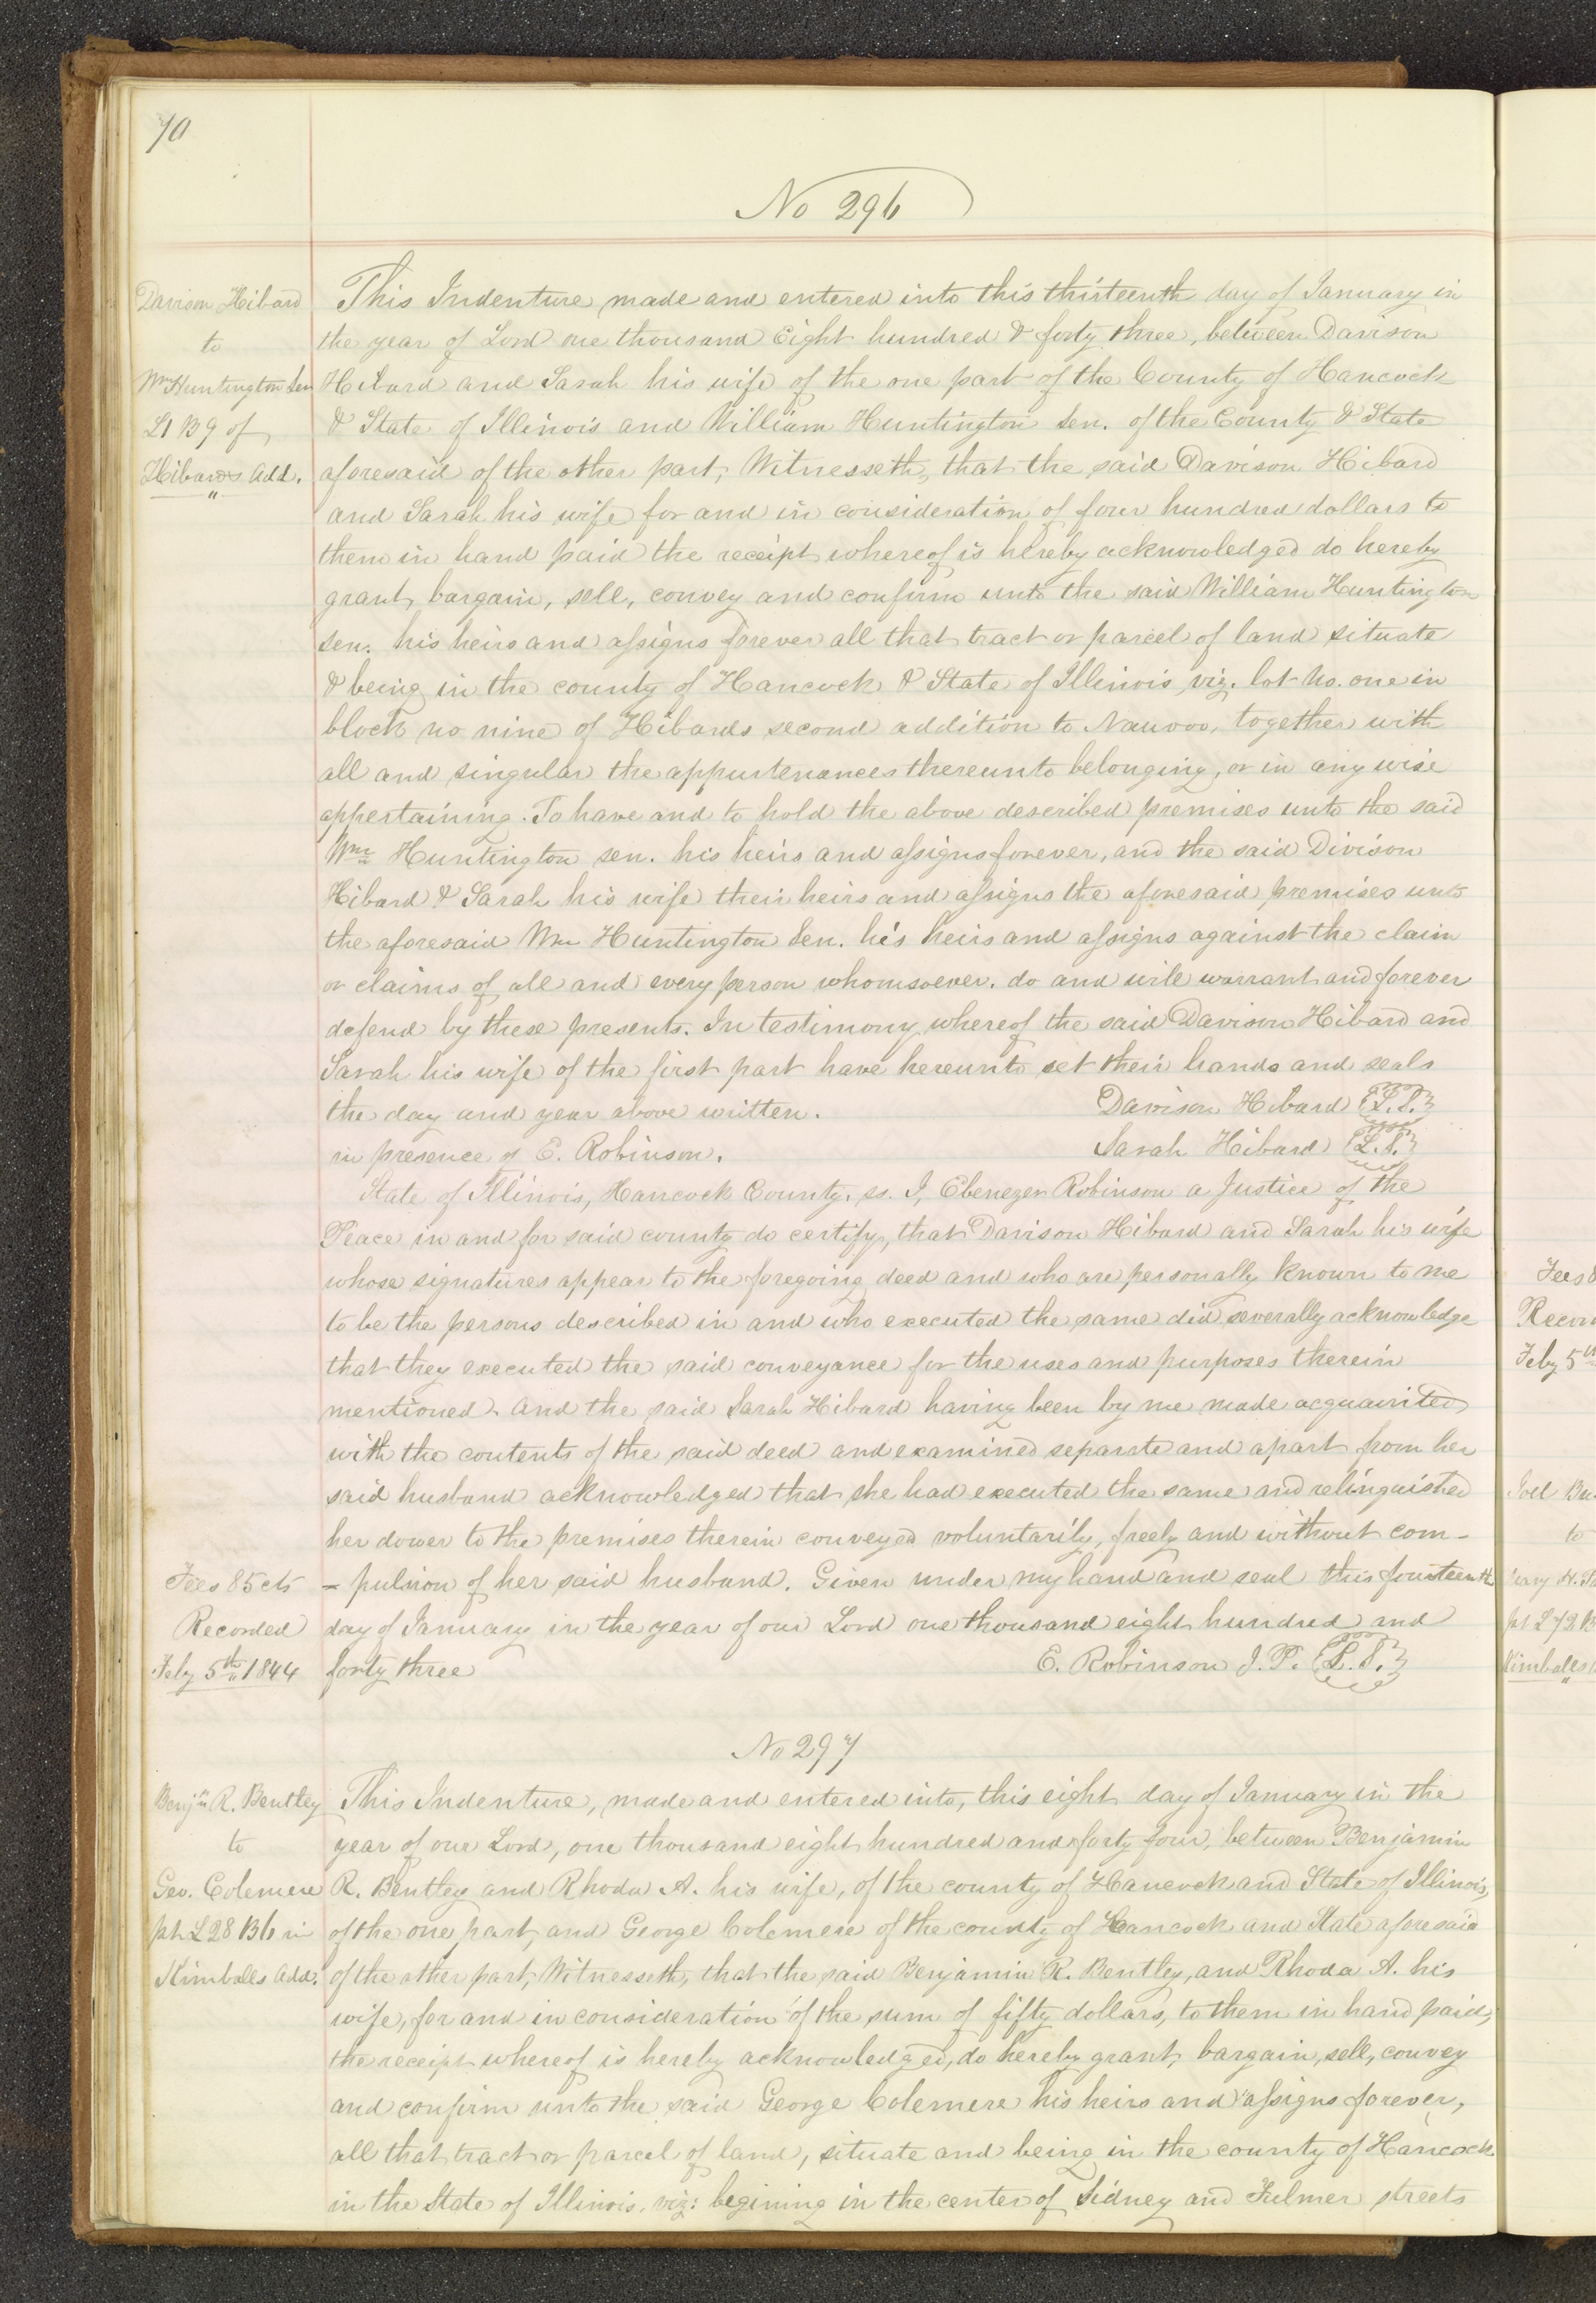 70
No 296
Davison Hibard
to
Wm Huntington Sen
L1 B9 of
Hibards Add.
This Indenture made and entered into this thirteenth day of January in
the year of Lord one thousand Eight hundred & forty three, between Davison
Hibard and Sarah his wife of the one part of the County of Hancock
& State of Illinois and William Huntington Sen. of the County & State
aforesaid of the other part, Witnesseth, that the said Davison Hibard
and Sarah his wife for and in consideration of four hundred dollars to
them in hand paid the receipt whereof is hereby acknowledged do hereby
grant, bargain, sell, convey and confirm unto the said William Huntington
sen. his heirs and assigns forever all that tract or parcel of land situate
& being in the county of Hancock & State of Illinois viz. lot No. one in
block no nine of Hibards second addition to Nauvoo, together with
all and singular the appurtenances thereunto belonging, or in any wise
appertaining. To have and to hold the above described premises unto the said
Wm Huntington sen. his heirs and assigns forever, and the said Divison
Hibard & Sarah his wife their heirs and assigns the aforesaid premises unto
the aforesaid Wm Huntington Sen. his heirs and assigns against the claim
or claims of all and every person whomsoever. do and will warrant and forever
defend by these presents. In testimony whereof the said Davison Hibard and
Sarah his wife of the first part have hereunto set their hands and seals
the day and year above written. Davison Hibard L.S.
in presence of E. Robinson. Sarah Hibard L.S.
State of Illinois, Hancock County. ss. I, Ebenezer Robinson a Justice of the
Peace in and for said county do certify, that Davison Hibard and Sarah his wife
whose signatures appear to the foregoing deed and who are personally known to me
to be the persons described in and who executed the same did severally acknowledge
that they executed the said conveyance for the uses and purposes therein
mentioned. And the said Sarah Hibard having been by me made acquainted
with the contents of the said deed and examined separate and apart from her
said husband acknowledged that she had executed the same and relinguished
her dower to the premises therein conveyed voluntarily, freely and without com-
-pulsion of her said husband. Given under my hand and seal this fourteenth
day of January in the year of our Lord one thousand eight hundred and
forty three E. Robinson J.P. L.S.
Fees 85 cts
Recorded
Feby 5th 1844
No 297
Benjn R. Bentley
to
Geo. Colemere
pt L28 B6 in
Kimballs Add.
This Indenture, made and entered into, this eight day of January in the
year of our Lord, one thousand eight hundred and forty four, between Benjamin
R. Bentley and Rhoda A. his wife, of the county of Hancock and State of Illinois,
of the one part, and George Colemere of the county of Hancock and State aforesaid
of the other part, Witnesseth, that the said Benjamin R. Bentley, and Rhoda A. his
wife, for and in consideration of the sum of fifty dollars, to them in hand paid,
the receipt whereof is hereby acknowledged, do hereby grant, bargain, sell, convey
and confirm unto the said George Colemere his heirs and assigns forever,
all that tract or parcel of land, situate and being in the county of Hancock
in the State of Illinois, viz: begining in the center of Sidney and Fulmer streets
Fees 8
Feby 5th
to